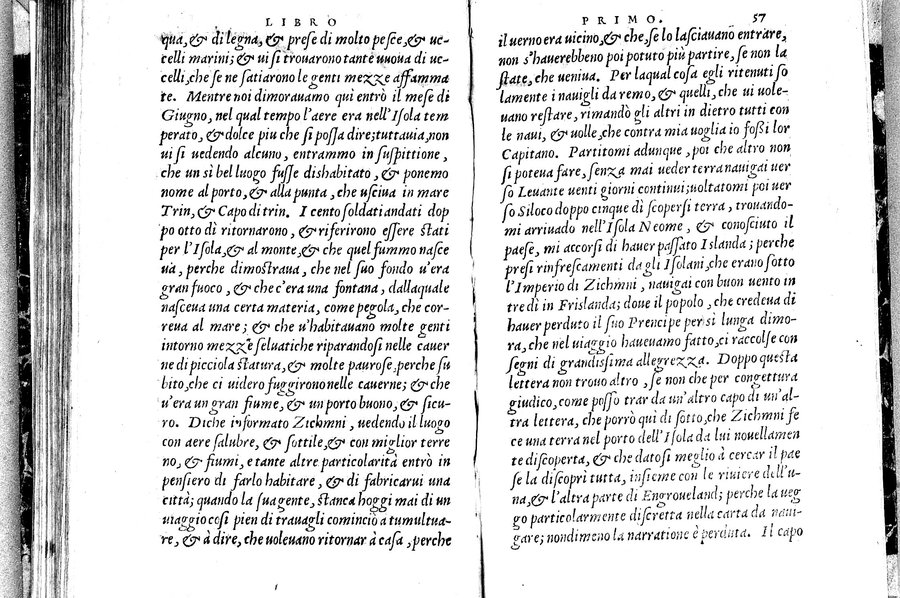 LIBRO
qua, & di legna, & prese di molto pesce, & uc-
celli marini; & ui si trouarono tante uuoua di uc-
celli, che se ne satiarono le genti mezze affamma
te. Mentre noi dimorauamo quì entrò il mese di
Giugno, nel qual tempo l'aere era nell'Isola tem
perato, & dolce piu che si possa dire; tuttauia, non
ui si uedendo alcuno, entrammo in suspittione,
che un sì bel luogo fusse dishabitato, & ponemo
nome al porto, & alla punta, che usciua in mare
Trin, & Capo di trin. I cento soldati andati dop
po otto dì ritornarono, & riferirono essere stati
per l'Isola, & al monte, & che quel fummo nasce
ua, perche dimostraua, che nel suo fondo u'era
gran fuoco, & che c'era una fontana, dallaquale
nasceua una certa materia, come pegola, che cor-
reua al mare; & che u'habitauano molte genti
intorno mezze seluatiche riparandosi nelle cauer
ne di picciola statura, & molte paurose, perche su
bito, che ci uidero fuggirono nelle cauerne; & che
u'era un gran fiume, & un porto buono, & sicu-
ro. Di che informato Zichmni, uedendo il luogo
con aere salubre, & sottile, & con miglior terre
no, & fiumi, e tante altre particolarità entrò in
pensiero di farlo habitare, & di fabricarui una
città; quando la sua gente, stanca hoggi mai di un
uiaggio così pien di trauagli cominciò a tumultua-
re, & à dire, che uoleuano ritornar à casa, perche
PRIMO. 57
il uerno era uicino, & che, se lo lasciauano entrare,
non s'hauerebbeno poi potuto più partire, se non la
state, che ueniua. Per laqual cosa egli ritenuti so
lamente i nauigli da remo, & quelli, che ui uole-
uano restare, rimandò gli altri in dietro tutti con
le naui, & uolle, che contra mia uoglia io fossi lor
Capitano. Partitomi adunque, poi che altro non
si poteua fare, senza mai ueder terra nauigai uer
so Leuante uenti giorni continui; uoltatomi poi uer
so Siloco doppo cinque dì scopersi terra, trouando-
mi arriuado nell'Isola Neome, & conosciuto il
paese, mi accorsi di hauer passato Islanda; perche
presi rinfrescamenti da gli Isolani, che erano sotto
l'Imperio di Zichmni, nauigai con buon uento in
tre dì in Frislanda; doue il popolo, che credeua di
hauer perduto il suo Prencipe per sì lunga dimo-
ra, che nel uiaggio haueuamo fatto, ci raccolse con
segni di grandissima allegrezza. Doppo questa
lettera non trouo altro, se non che per congettura
giudico, come posso trar da un'altro capo di un'al-
tra lettera, che porrò qui di sotto, che Zichmni fe
ce una terra nel porto dell'Isola da lui nouellamen
te discoperta, & che datosi meglio à cercar il pae
se la discoprì tutta, insieme con le riuiere dell'u-
na, & l'altra parte di Engroueland; perche la ueg
go particolarmente discretta nella carta da naui-
gare; nondimeno la narratione è perduta. Il capo